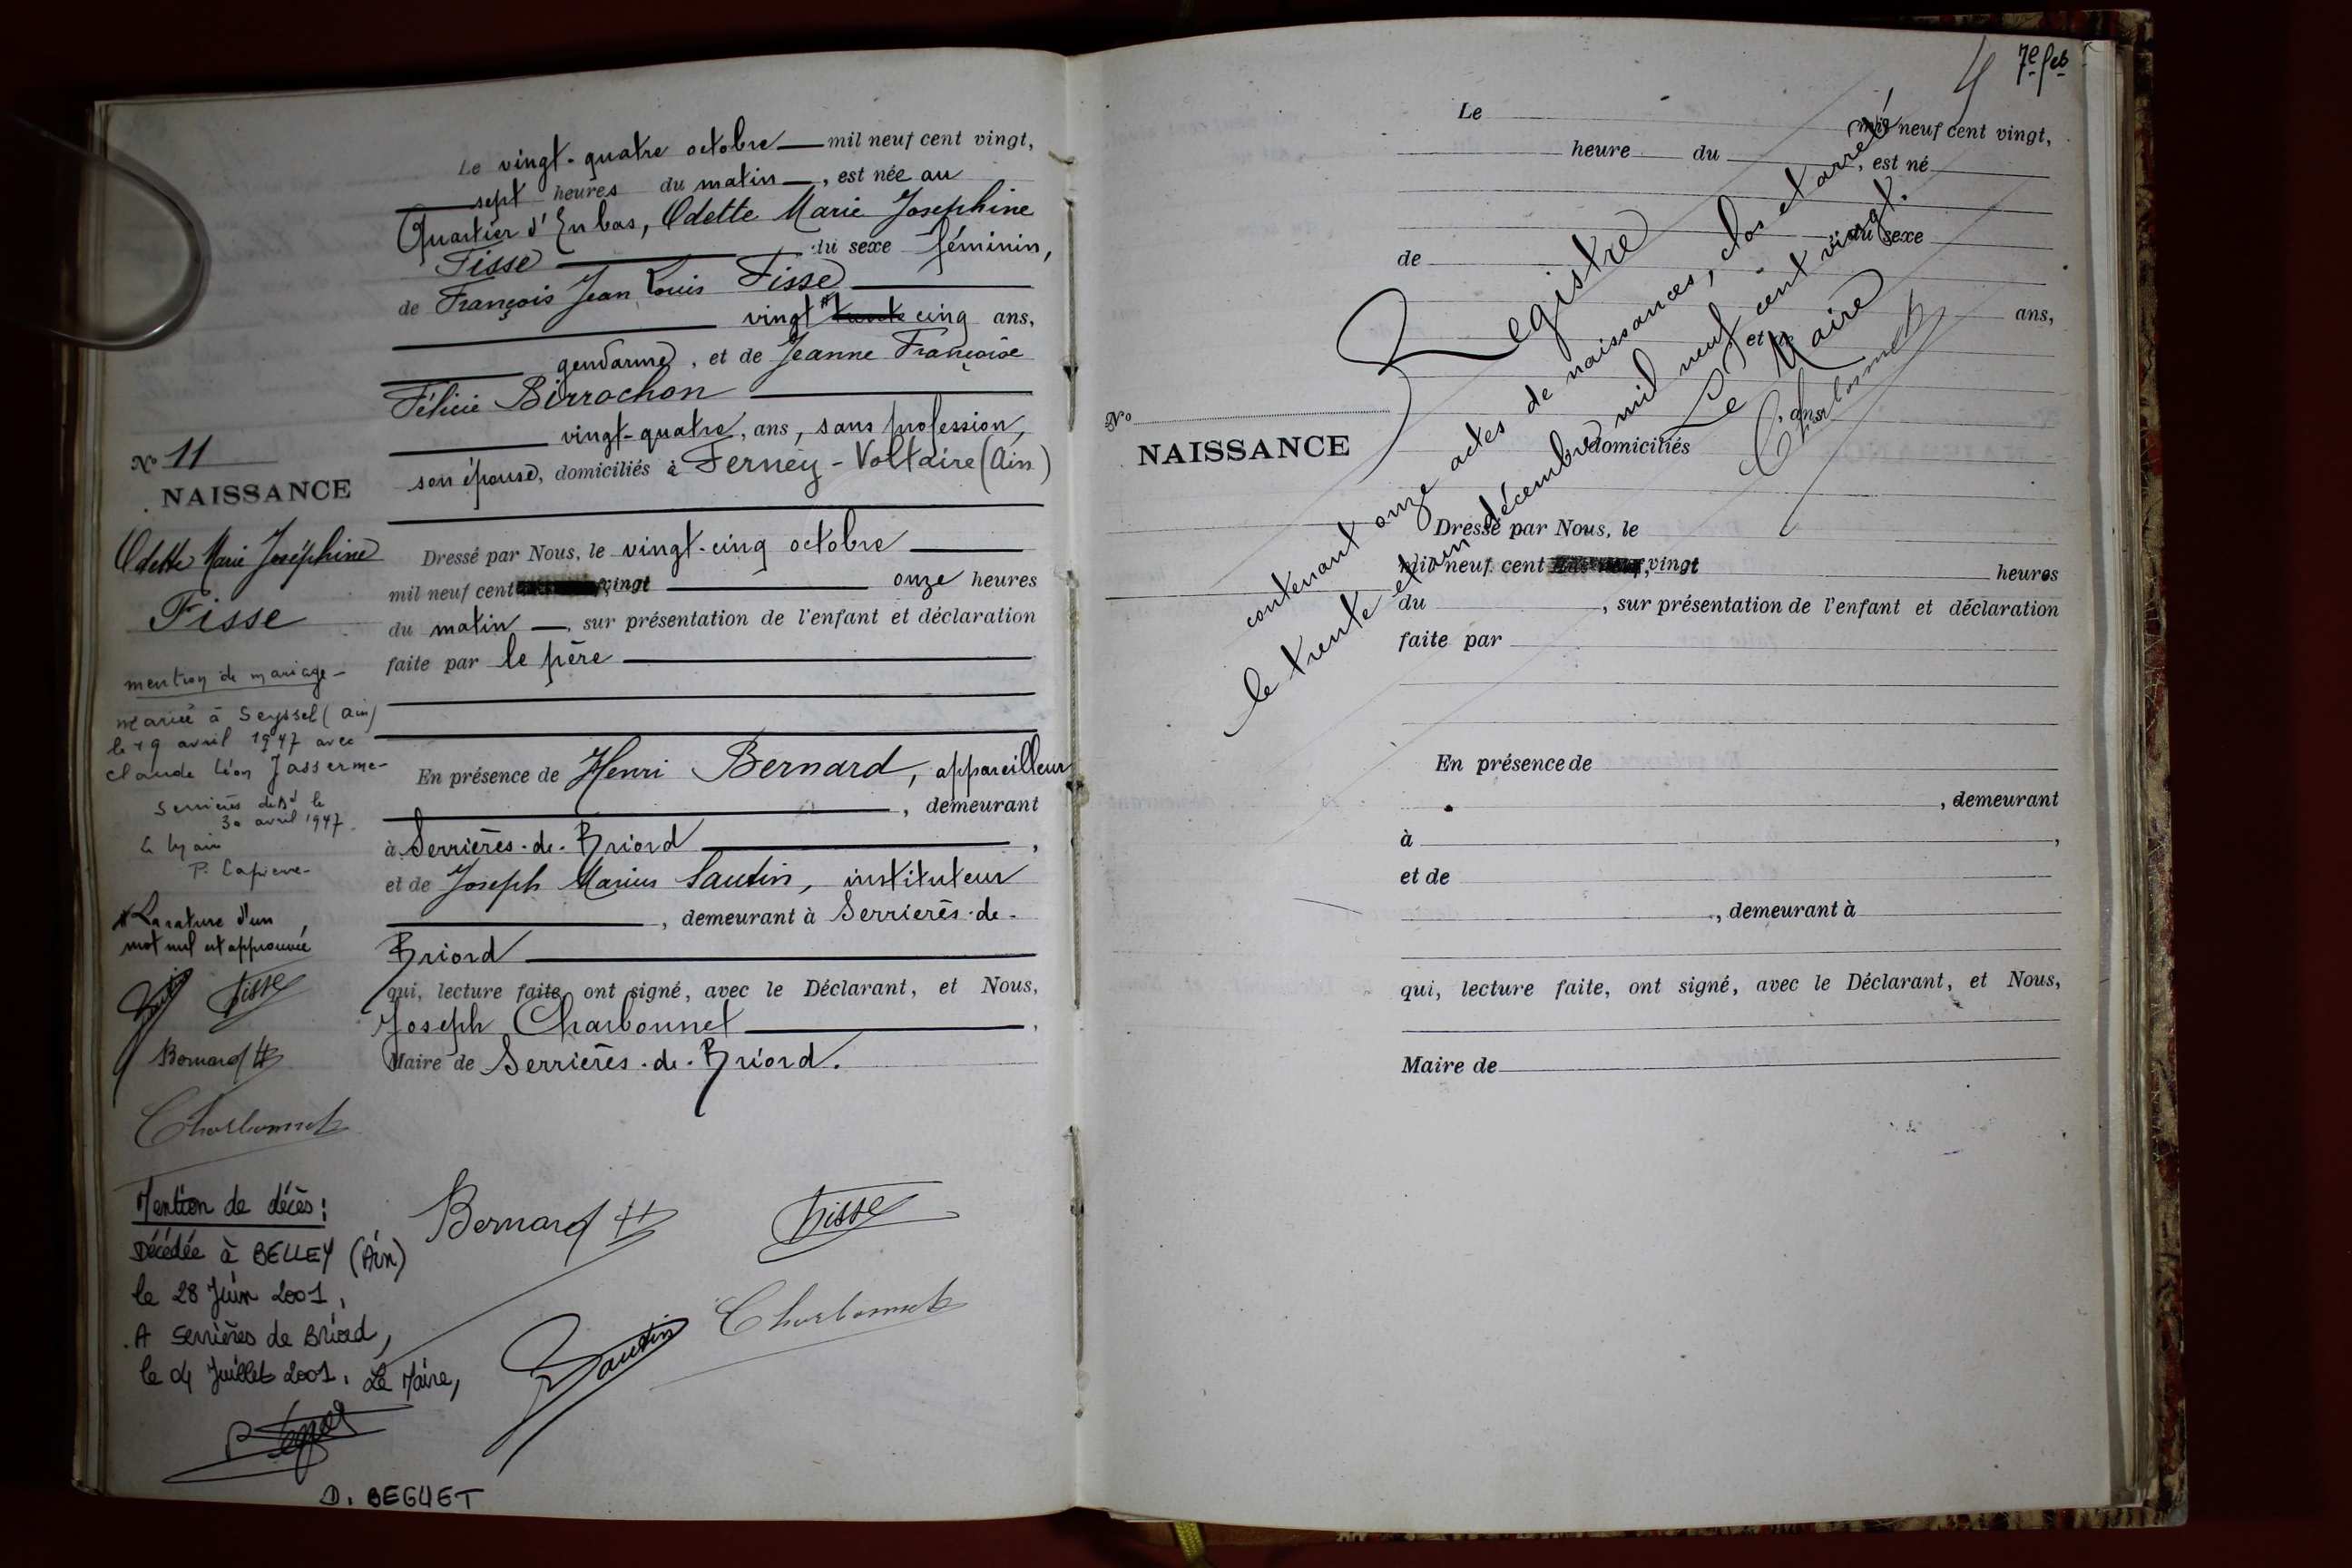 Le vingt-quatre octobre mil neuf cent vingt,
sept heures du matin, est née au
Quartier d'En bas, Odette Marie Josephine
Fisse du sexe féminin,
de François Jean Louis Fisse
vingt # trente cinq ans,
gendarme, et de Jeanne Françoise
Félicie Birrochon
vingt-quatre, ans, sans profession,
son épouse, domiciliés à Ferney-Voltaire (Ain)
Dressé par Nous, le vingt-cinq octobre
mil neuf cent vingt onze heures
du matin, sur présentation de l'enfant et déclaration
faite par le père
En présence de Henri Bernard, appareilleur
, demeurant
à Serrières-de-Briord,
et de Joseph Marius Sautin, instituteur
, demeurant à Serrières-de-
Briord
qui, lecture faite, ont signé, avec le Déclarant, et Nous,
Joseph Charbonnet,
Maire de Serrières-de-Briord.
Bernard H
Fisse
Sautin
Charbonnet
No 11
NAISSANCE
Odette Marie Joséphine
Fisse
mention de mariage -
mariée à Seyssel (Ain)
le 19 avril 1947 avec
Claude Léon Jasserme-
Serrières de Bd le
30 avril 1947
Le Maire
# La rature d'un
mot nul est approuvée
Fisse
Bernard H
Charbonnet
Mention de décès :
Décédée à BELLEY (Ain)
le 28 Juin 2001,
A Serrières de Briord,
le 04 Juillet 2001. Le Maire,
D. BEGUET
4 7e feb
Le mil neuf cent vingt,
heure du , est né
du sexe
de
ans,
et de
ans
domiciliés
No
NAISSANCE
Dressé par Nous, le
mil neuf cent vingt heures
du , sur présentation de l'enfant et déclaration
faite par
En présence de
, demeurant
à ,
et de
, demeurant à
qui, lecture faite, ont signé, avec le Déclarant, et Nous,
Maire de
Registre
contenant onze actes de naissances, clos et arrêté
le trente et un décembre mil neuf cent vingt.
Le Maire
Charbonnet